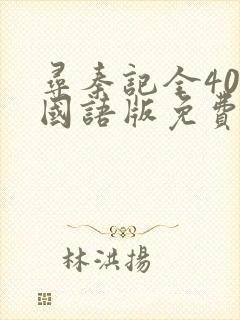 尋秦記全40
國語版免費
林洪揚